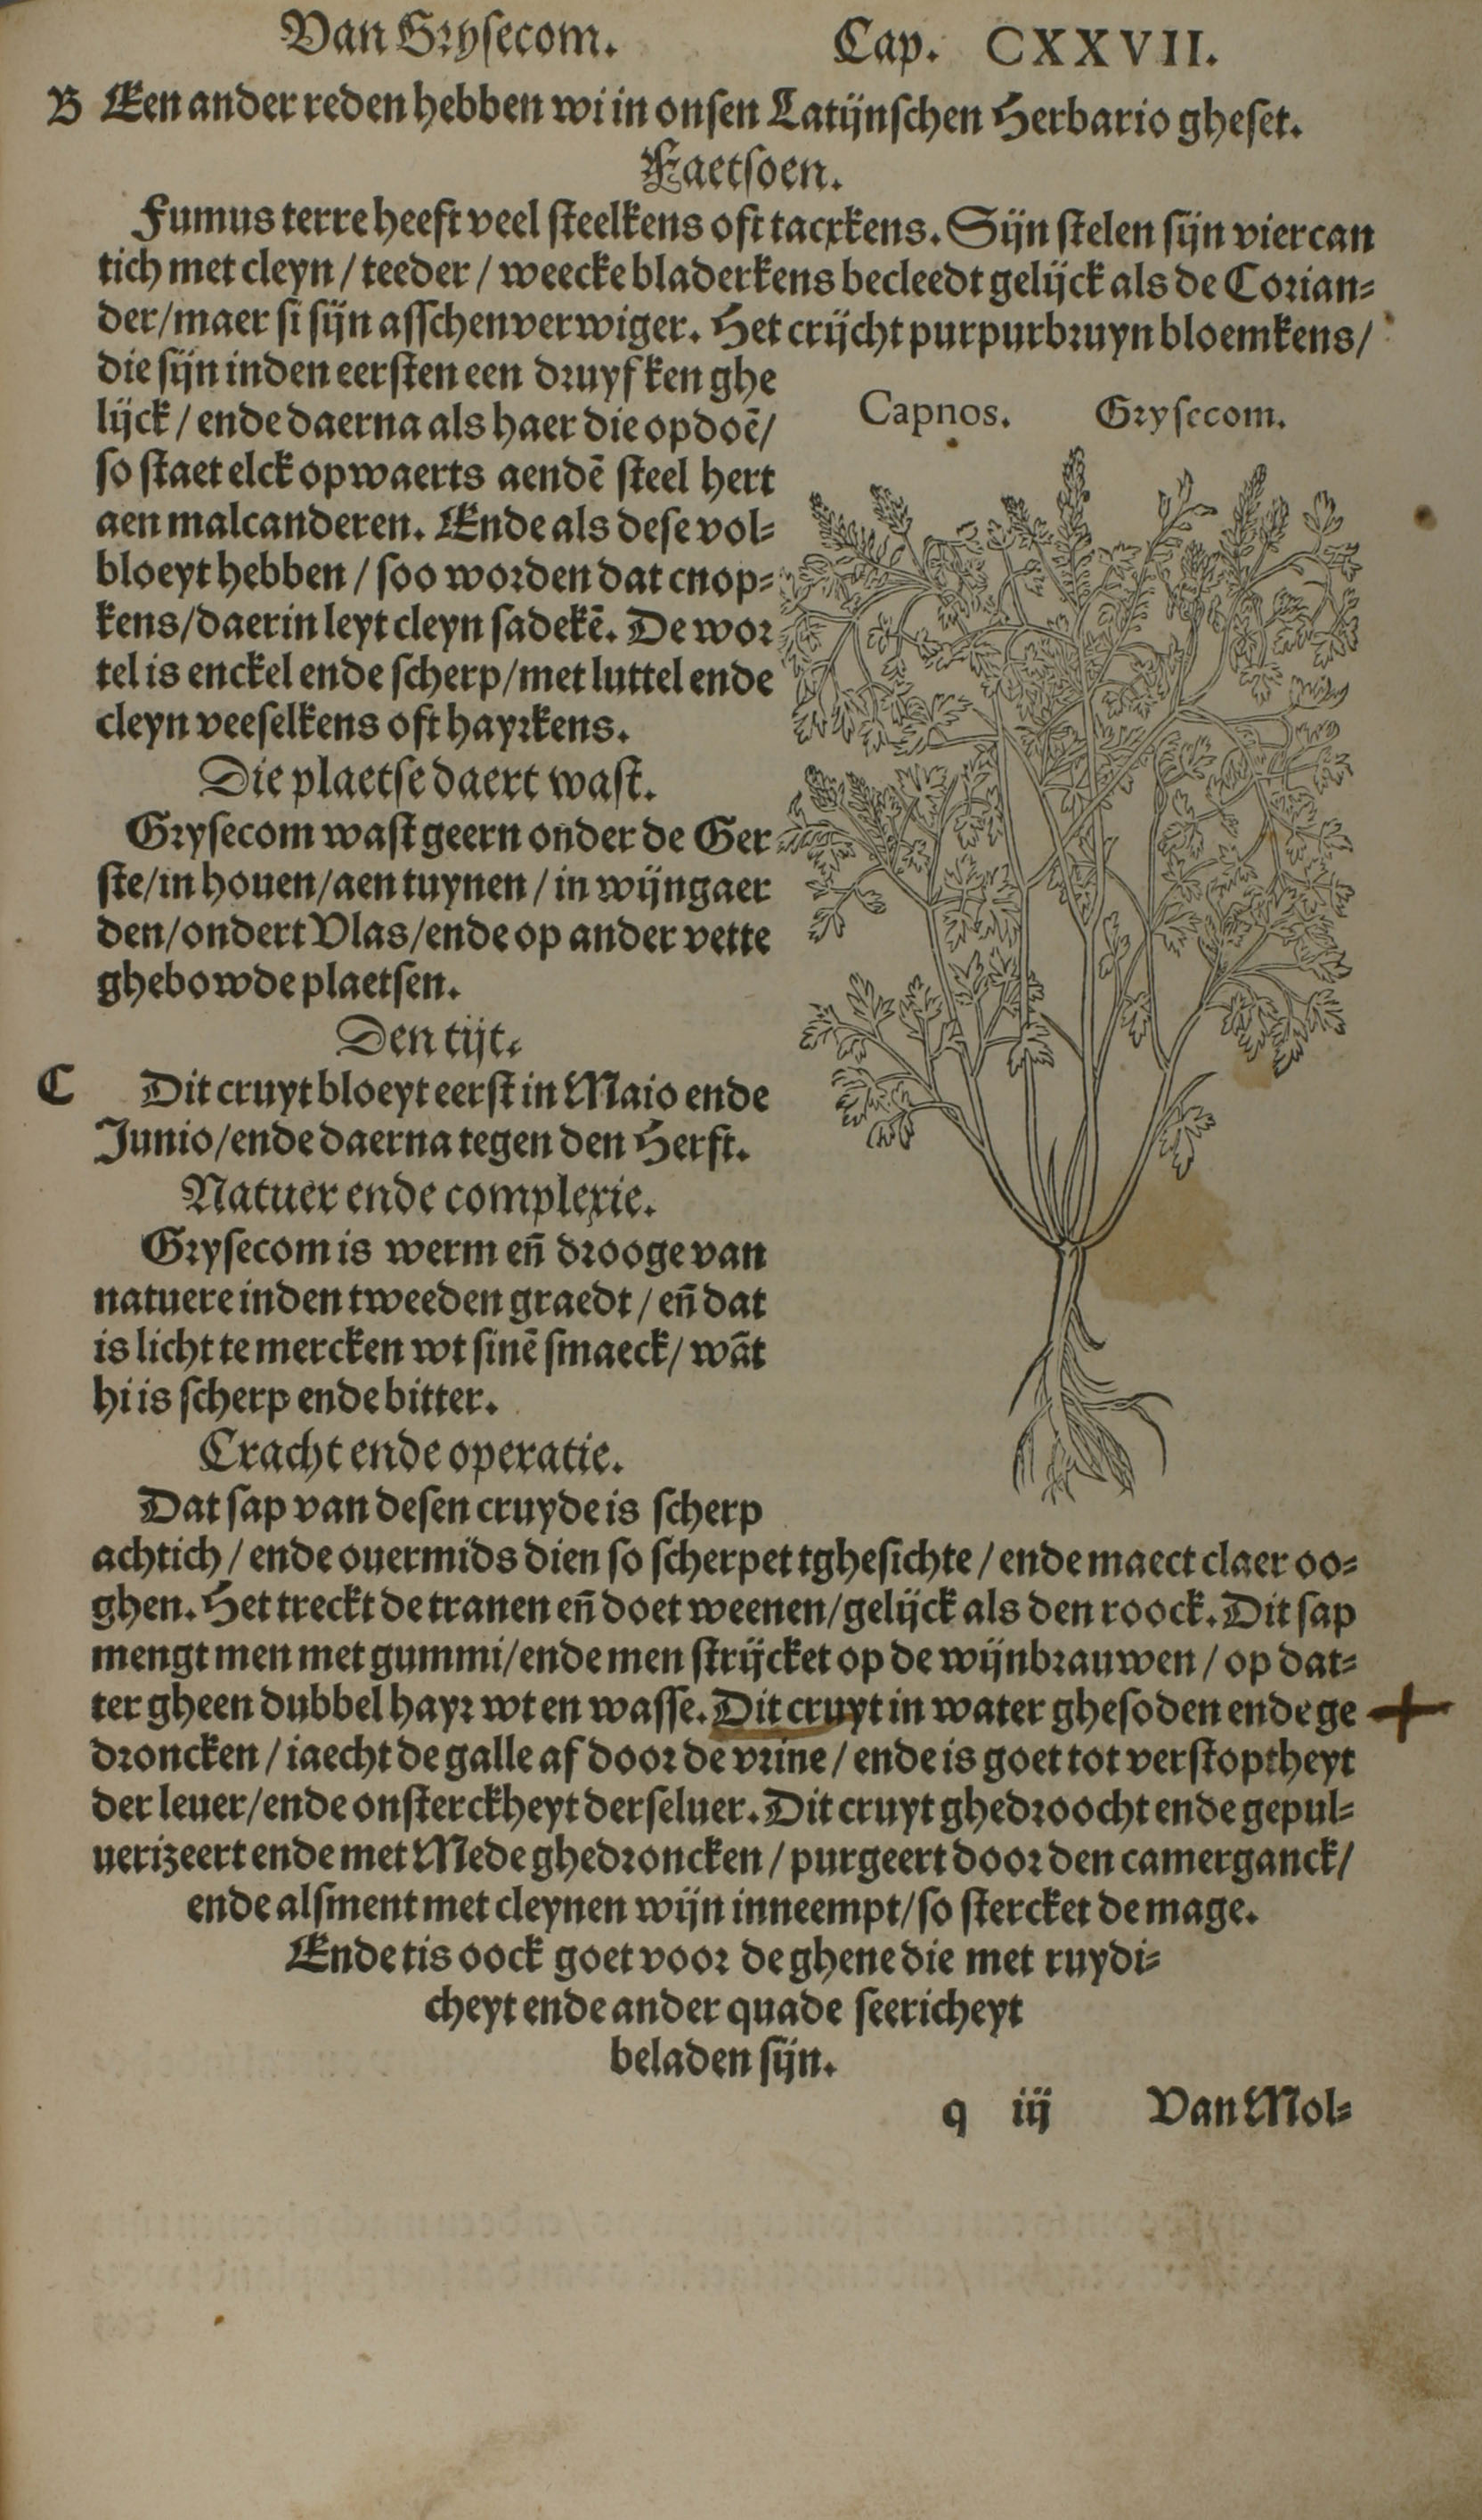 Van Grysecom. Cap. CXXVII.
B Een ander reden hebben wi in onsen Latijnschen Herbario gheset.
Faetsoen.
Fumus terre heeft veel steelkens oft tacxkens. Sijn stelen sijn viercan
tich met cleyn / teeder / weecke bladerkens becleedt gelijck als de Corian⸗
der/maer si sijn asschenverwiger. Het crijcht purpurbruyn bloemkens/
die sijn inden eersten een druyfken ghe
lijck / ende daerna als haer die opdoē/
so staet elck opwaerts aendē steel hert
aen malcanderen. Ende als dese vol⸗
bloeyt hebben / soo worden dat cnop⸗
kens/daer in leyt cleyn sadekē. De wor
tel is enckel ende scherp/met luttel ende
cleyn veeselkens oft hayrkens.
Capnos. Grysecom.
Die plaetse daert wast.
Grysecom wast geern onder de Ger
ste/in houen/aen tuynen / in wijngaer
den/ondert Vlas/ende op ander vette
ghebowde plaetsen.
Den tijt.
C Dit cruyt bloeyt eerst in Maio ende
Junio/ende daerna tegen den Herfst.
Natuer ende complexie.
Grysecom is werm eñ drooge van
natuere inden tweeden graedt / eñ dat
is licht te mercken wt sinē smaeck/ wāt
hi is scherp ende bitter.
Cracht ende operatie.
Dat sap van desen cruyde is scherp
achtich / ende ouermids dien so scherpet tghesichte / ende maect claer oo⸗
ghen. Het treckt de tranen eñ doet weenen/gelijck als den roock. Dit sap
mengt men met gummi/ende men strijcket op de wijnbrauwen / op dat⸗
ter gheen dubbel hayr wt en wasse. Dit cruyt in water ghesoden ende ge
droncken / iaecht de galle af door de vrine / ende is goet tot verstoptheyt
der leuer/ende onsterckheyt derseluer. Dit cruyt ghedroocht ende gepul⸗
uerizeert ende met Mede ghedroncken / purgeert door den camerganck/
ende alsment met cleynen wijn inneempt/so stercket de mage.
Ende tis oock goet voor de ghene die met ruydi⸗
cheyt ende ander quade seericheyt
beladen sijn.
q iij Van Mol⸗